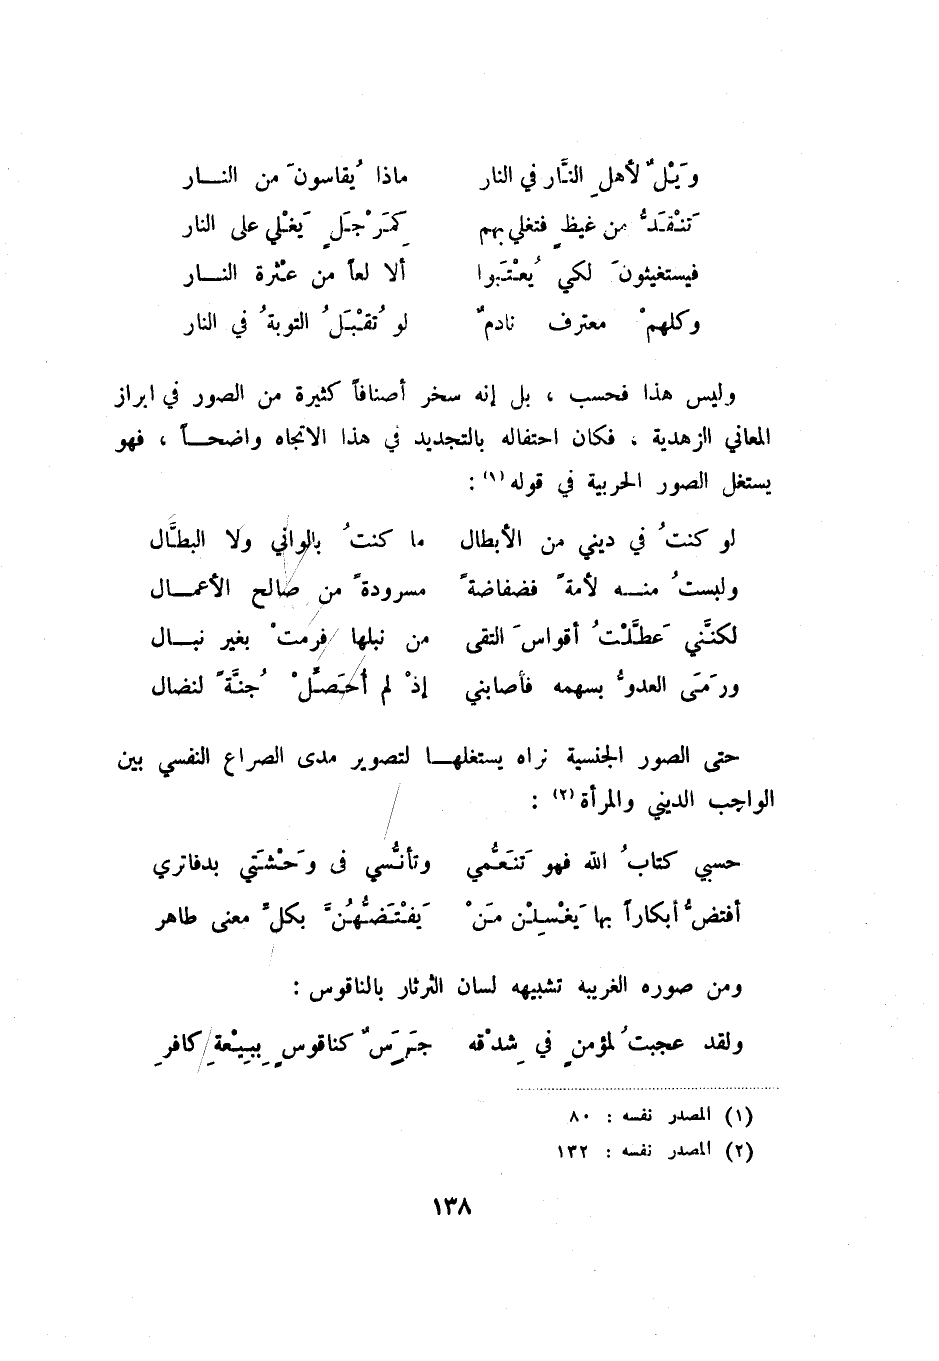 وَيْلٌ لأهلِ النَّار في النار    ماذا يُقاسونَ من النـــار
تَنْقَدُّ من غيظٍ فتغلي بهم    كمَرْجَلٍ يَغْلي على النار
فيستغيثونَ لكي يُعْتَبوا    ألا لعاً من عثْرة النـــار
وكلهمْ معترف نادمٌ    لو تُقْبَلُ التوبةُ في النار
وليس هذا فحسب ، بل إنه سخر أصنافاً كثيرة من الصور في ابراز
المعاني الزهدية ، فكان احتفاله بالتجديد في هذا الاتجاه واضحـــاً ، فهو
يستغل الصور الحربية في قوله (١) :
لو كنتُ في ديني من الأبطال    ما كنتُ بالواني ولا البطَّال
ولبستُ منـــه لأمةً فضفاضةً    مسرودةً من صالح الأعمـــال
لكنَّني عَطَّلْتُ أقواسَ التقى    من نبلها فرمتْ بغير نبـــال
ورَمَى العدوُّ بسهمه فأصابني    إذْ لم أُحَصِّلْ جُنَّةً لنضال
حتى الصور الجنسية نراه يستغلهـــا لتصوير مدى الصراع النفسي بين
الواجب الديني والمرأة (٢) :
حسبي كتابُ الله فهو تَنَعُّمي    وتأنُّسي في وَحْشَتي بدفاتري
أفتضُّ أبكاراً بها يَغْسِلْن مَنْ    يَفْتَضُّهُنَّ بكلِّ معنى طاهر
ومن صوره الغريبه تشبيهه لسان الثرثار بالناقوس :
ولقد عجبتُ لمؤمنٍ في شِدْقه    جَرَسٌ كناقوسٍ بِبيْعةِ كافرِ
(١) المصدر نفسه : ٨٠
(٢) المصدر نفسه : ١٣٢
١٣٨